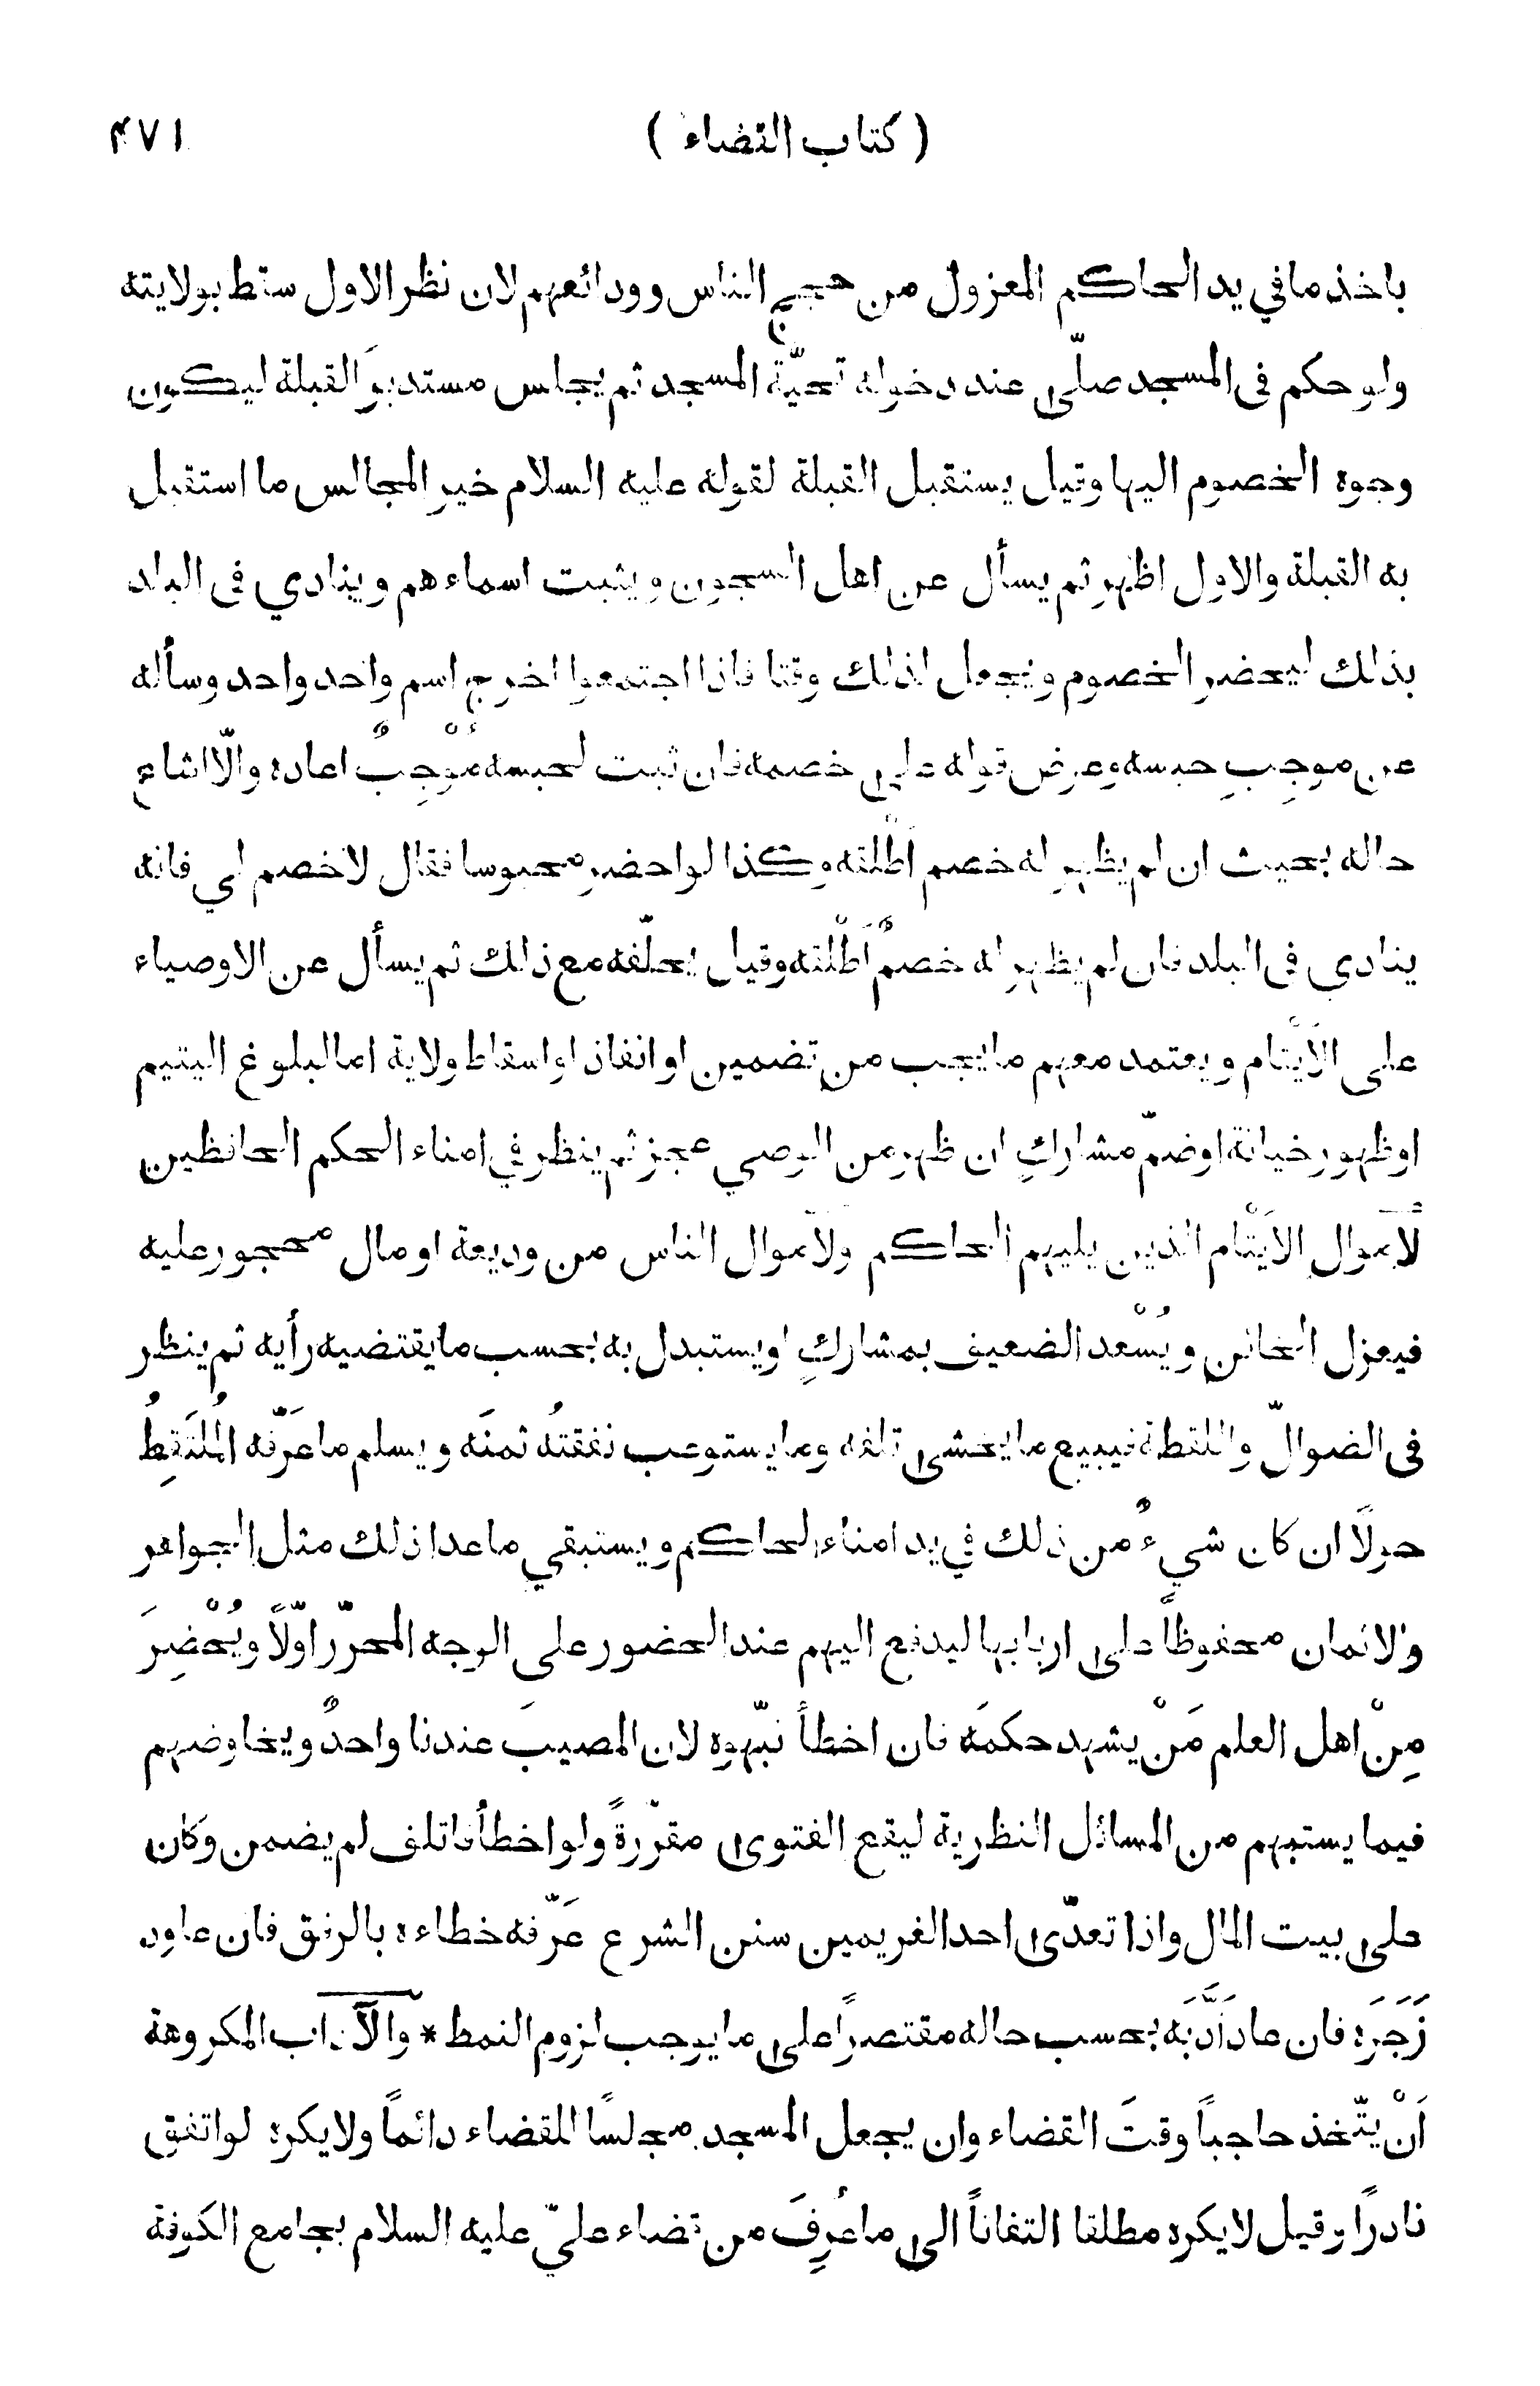 ( كتاب القضاء ) ٤٧١
باخذ ما في يد الحاكم المعزول من حجج الناس وودائعهم لان نظر الاول سقط بولايته
ولو حكم فى المسجد صلّى عند دخوله تحيّة المسجد ثم يجلس مستدبرَ القبلة ليكون
وجوه الخصوم اليها وقيل يستقبل القبلة لقوله عليه السلام خير المجالس ما استقبل
به القبلة والاول اظهر ثم يسأل عن اهل السجون ويثبت اسماءهم وينادي فى البلد
بذلك ليحضر الخصوم ويجعل لذلك وقتا فاذا اجتمعوا اخرج اسم واحد واحد وسأله
عن موجِبِ حبسه وعرض قوله على خصمه فان ثبت لحبسه مُوْجِبٌ اعاده والّا اشاع
حاله بحيث ان لم يظهر له خصم اطْلقه وكذا لو احضر محبوسا فقال لا خصم لي فانه
ينادى فى البلد فان لم يظهر له خصمٌ اَطْلقه وقيل يحلّفه مع ذلك ثم يسأل عن الاوصياء
على الاَيْتام ويعتمد معهم ما يجب من تضمين او انفاذ او اسقاط ولاية اما لبلوغ اليتيم
او ظهور خيانة او ضمّ مشاركٍ ان ظهر من الوصي عجز ثم ينظر في امناء الحكم الحافظين
لاَموال الاَيْتام الذين يليهم الحاكم ولاَموال الناس من وديعة او مال محجور عليه
فيعزل الخائن ويُسْعد الضعيف بمشاركٍ او يستبدل به بحسب ما يقتضيه رأيه ثم ينظر
فى الضوالّ واللقطة فيبيع ما يخشى تلفه وما يستوعب نفقتُه ثمنَه ويسلم ما عَرّفه المُلتَقِطُ
حولًا ان كان شيءٌ من ذلك في يد امناء الحاكم ويستبقي ما عدا ذلك مثل الجواهر
والاثمان محفوظاً على اربابها ليدفع اليهم عند الحضور على الوجه المحرّر اوّلاً ويُحْضِرَ
مِنْ اهل العلم مَنْ يشهد حكمَه فان اخطأ نبّهوه لان المصيبَ عندنا واحدٌ ويخاوضهم
فيما يستبهم من المسائل النظرية ليقع الفتوى مقرّرةً ولو اخطأ فاتلف لم يضمن وكان
على بيت المال واذا تعدّى احد الغريمين سنن الشرع عَرّفه خطاءه بالرفق فان عاود
زَجَرَه فان عاد اَدَّبَه بحسب حاله مقتصرًا على ما يوجب لزوم النمط * والآداب المكروهة
اَنْ يتّخذ حاجباً وقتَ القضاء وان يجعل المسجد مجلسًا للقضاء دائماً ولا يكره لو اتفق
نادرًا وقيل لا يكره مطلقا التفاتاً الى ما عُرِفَ من قضاء عليّ عليه السلام بجامع الكوفة